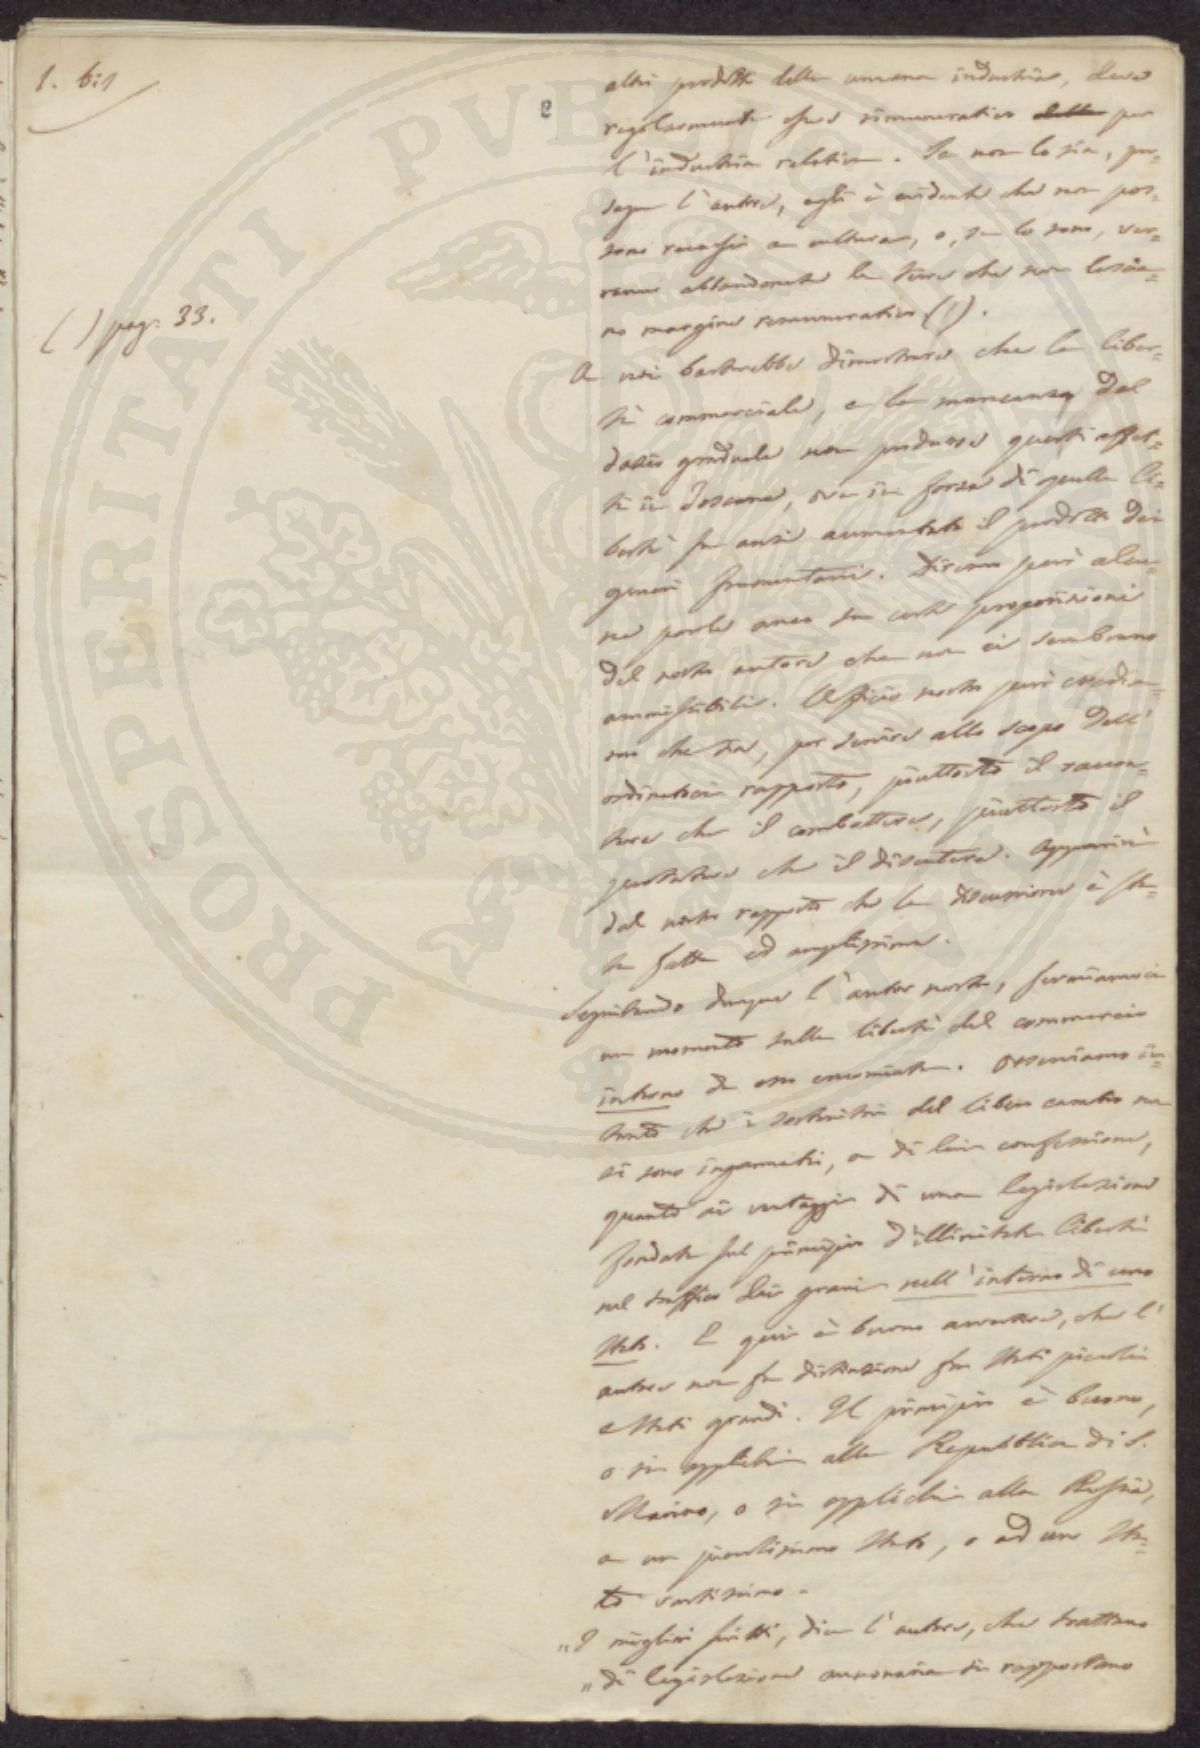 1. bis
altri prodotti della umana industria, deve
regolarmente esser rimunerativo delle per
l'industria relativa. Se non lo sia, pro=
segue l'autore, egli è evidente che non pos=
sono recarsi a cultura, o, se lo sono, ver=
ranno abbandonate le terre che non lascia=
no margine remunerativo (1).
( ) pag: 33.
A noi basterebbe dimostrare che la liber=
tà commerciale, e la mancanza del
dazio graduale non produsse questi effet=
ti in Toscana, ove in forza di quella li=
bertà fu anzi aumentato il prodotto dei
generi frumentari. Diremo però alcu=
ne parole anco su certe proposizioni
del nostro autore che non ci sembrano
ammissibili. Officio nostro però credia=
mo che sia, per servire allo scopo dell'
ordinatoci rapporto, piuttosto il raccon=
tare che il combattere, piuttosto il
che il discutere. Apparirà
dal nostro rapporto che la discussione è sta=
ta fatta ed amplissima.
Seguitando dunque l'autor nostro, fermiamoci
un momento sulla libertà del commercio
interno da esso encomiata. Osserviamo in=
tanto che i sostenitori del libero cambio non
si sono ingannati, a di lui confessione,
quanto ai vantaggi di una legislazione
fondata sul principio d'illimitata libertà
nel traffico dei grani nell'interno di uno
Stato. E qui è buono avvertire, che l'
autore non fa distinzione fra Stati piccoli
e Stati grandi. Il principio è buono,
o si applichi alla Repubblica di S.
Marino, o si applichi alla Russia,
a un piccolissimo Stato, o ad uno Sta=
to vastissimo.
"I migliori scritti, dice l'autore, che trattano
"di legislazione annonaria si rapportano
PROSPERITATI PUBLICAE